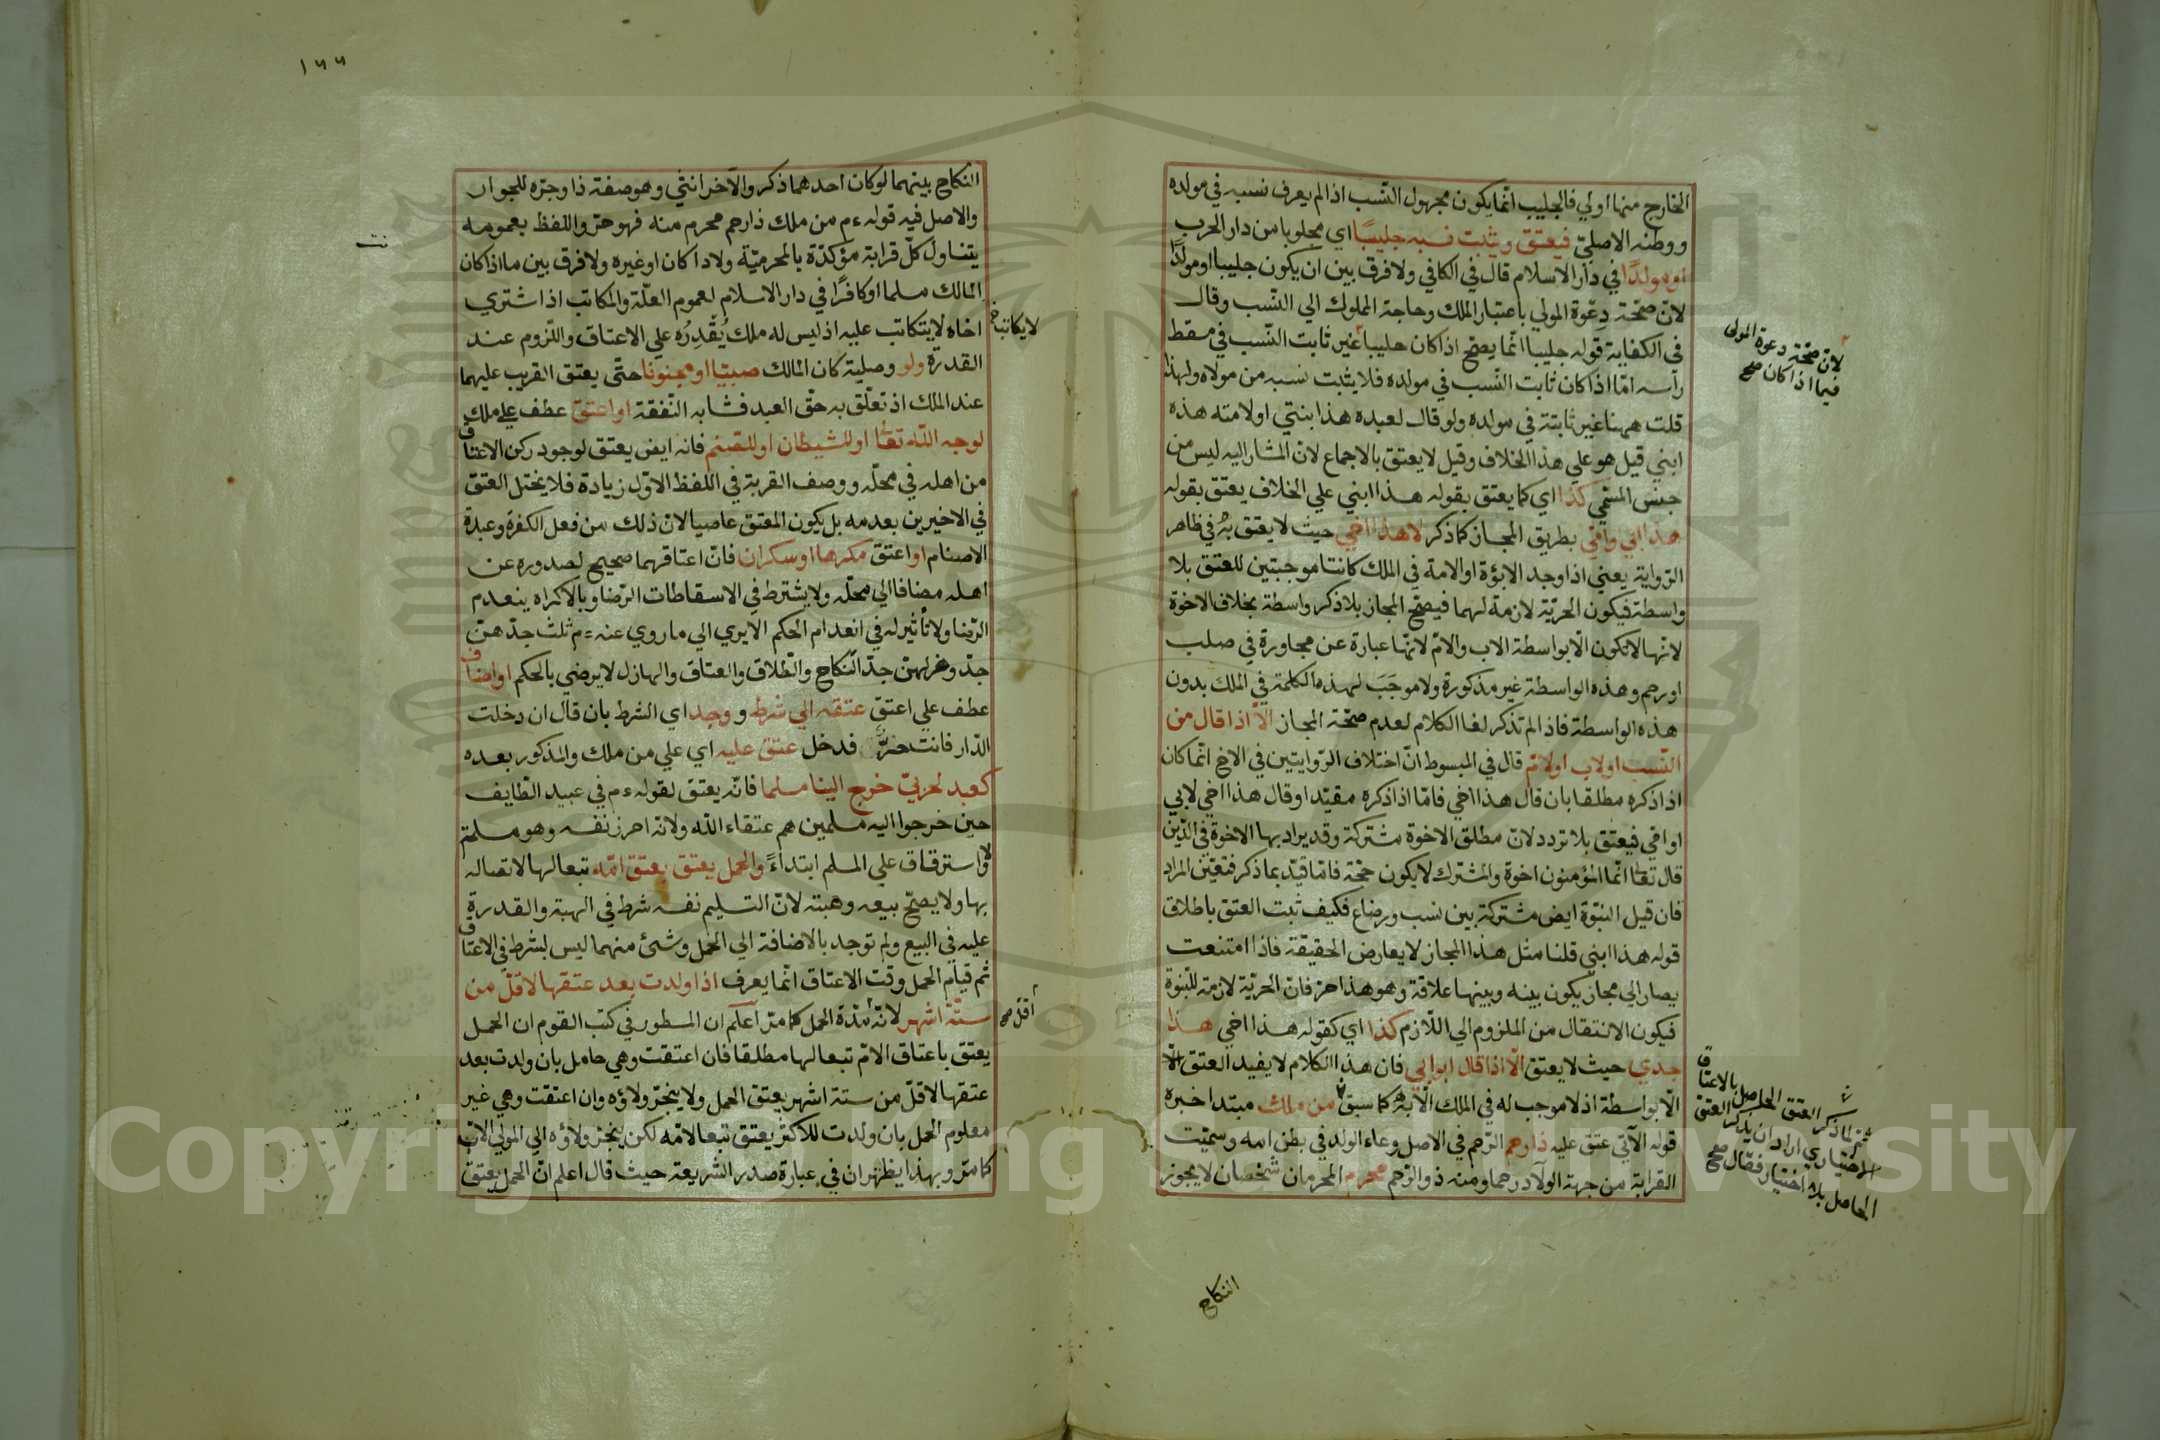 الخارج منها اولي فالجليب انما يكون مجهول النسب اذا لم يعرف نسبه في مولده
ووطنه الاصلي فيعتق ويثبت نسبه جليبًا اي مجلوبا من دار الحرب
او مولدًا في دار الاسلام قال في الكافي ولا فرق بين ان يكون جليبا او مولدًا
لان صحة دعوة المولي باعتبار الملك وحاجة المملوك الي النسب وقال
في الكفاية قوله جليبا انما يصح اذا كان جليبا غير ثابت النسب في مسقط
رأسه امّا اذا كان ثابت النسب في مولده فلا يثبت نسبه من مولاه ولهذا
قلت ههنا غير ثابتة في مولده ولو قال لعبده هذا بنتي او لامته هذه
ابني قيل هو علي هذا الخلاف وقيل لا يعتق بالاجماع لان المشار اليه ليس من
جنس المسمي كذا اي كما يعتق بقوله هذا ابني علي الخلاف يعتق بقوله
هذا ابي وامّي بطريق المجاز كما ذكر لا هذا اخي حيث لا يعتق به في ظاهر
الرّواية يعني اذا وجد الابوّة او الامة في الملك كانتا موجبتين للعتق بلا
واسطة فيكون الحريّة لازمة لهما فيصحّ المجاز بلا ذكر واسطة بخلاف الاخوة
لانّها لا تكون الّا بواسطة الاب والامّ لانّها عبارة عن مجاورة في صلب
او رحم وهذه الواسطة غير مذكورة ولا موجَبَ لهذه الكلمة في الملك بدون
هذه الواسطة فاذا لم تذكر لغا الكلام لعدم صحّة المجاز الّا اذا قال من
النّسب او لاب او لامّ قال في المبسوط انّ اختلاف الرّوايتين في الاخ انّما كان
اذا ذكره مطلقا بان قال هذا اخي فامّا اذا ذكره مقيّدا وقال هذا اخي لابي
او امّي فيعتق بلا تردد لانّ مطلق الاخوة مشتركة وقد يراد بها الاخوة في الدّين
قال تعا انّما المؤمنون اخوة والمشترك لا يكون حجّة فامّا قيّد بما ذكر فتعيّن المراد
فان قيل البنوّة ايض مشتركة بين نسب ورضاع فكيف ثبت العتق باطلاق
قوله هذا ابني قلنا مثل هذا المجاز لا يعارض الحقيقة فاذا امتنعت
يصار الي مجاز يكون بينه وبينها علاقة وهو هذا حرّ فانّ الحريّة لازمة للبنوة
فيكون الانتقال من الملزوم الي اللّازم كذا اي كقوله هذا اخي هذا
جدي حيث لا يعتق الّا اذا قال ابو ابي فان هذا الكلام لا يفيد العتق
الّا بواسطة اذ لا موجب له في الملك الّا به كما سبق من ملك مبتدا خبره
قوله الآتي عتق عليه ذا رحم الرّحم في الاصل وعاء الولد في بطن امه وسميّت
القرابة من جهة الولاد رحما ومنه ذو الرّحم محرم المحرمان شخصان لا يجوز
لان صحّة دعوة المولى
فيما اذا كان صح
ثم لما ذكر العتق الحاصل بالاعتاق
الاختياري اراد ان يذكر العتق
الحاصل بلا اختيار فقال صح
النكاح
١٦٦
النكاح بينهما لو كان احدهما ذكر والآخر انثي وهو صفة ذا وجرّه للجوار
والاصل فيه قوله ءم من ملك ذا رحم محرم منه فهو حرّ واللفظ بعمومه
يتناول كلّ قرابة مؤكدّة بالمحرميّة ولادا كان او غيره ولا فرق بين ما اذا كان
المالك مسلما او كافرًا في دار الاسلام لعموم العلّة والمكاتب اذا اشتري
اخاه لا يتكاتب عليه اذ ليس له ملك يُقْدِرُه علي الاعتاق واللّزوم عند
القدرة ولو وصلية كان المالك صبيّا او مجنونا حتّى يعتق القريب عليهما
عند الملك اذ تعلّق به حقّ العبد فشابه النّفقة او اعتق عطف علي ملك
لوجه اللّه تعا او للشيطان او للصنم فانه ايض يعتق لوجود ركن الاعتاق
من اهله في محلّه ووصف القربة في اللفظ الاوّل زيادة فلا يختل العتق
في الاخيرين بعدمه بل يكون المعتق عاصيا لان ذلك من فعل الكفرة وعبدة
الاصنام او اعتق مكرها او سكران فانّ اعتاقهما صحيح لصدوره عن
اهله مضافا الي محلّه ولا يشترط في الاسقاطات الرّضا وبالاكراه ينعدم
الرّضا ولا تأثير له في انعدام الحكم الا يري الي ما روي عنه ءم ثلث جدّهنّ
جدّ وهزلهنّ جدّ النّكاح والطّلاق والعتاق والهازل لا يرضي بالحكم او اضاف
عطف علي اعتق عتقه الي شرط ووجد اي الشرط بان قال ان دخلت
الدّار فانت حرّ فدخل عتق عليه اي علي من ملك والمذكور بعده
كعبد لحربيّ خرج الينا مسلما فانّه يعتق لقوله ءم في عبيد الطّايف
حين خرجوا اليه مسلمين هم عتقاء اللّه ولانّه احرز نفسه وهو مسلم
ولا استرقاق علي المسلم ابتداءً والحمل يعتق بعتق امّه تبعا لها لاتصاله
بها ولا يصحّ بيعه وهبته لانّ التسليم نفسه شرط في الهبة والقدرة
عليه في البيع ولم توجد بالاضافة الي الحمل وشئ منهما ليس لشرط في الاعتاق
ثم قيام الحمل وقت الاعتاق انّما يعرف اذا ولدت بعد عتقها لاقلّ من
ستّة اشهر لانّه مدّة الحمل كما مرّ اعلم ان المسطور في كتب القوم ان الحمل
يعتق باعتاق الامّ تبعا لها مطلقا فان اعتقت وهي حامل بان ولدت بعد
عتقها لاقلّ من ستة اشهر يعتق الحمل ولا ينجرّ ولاؤه وان اعتقت وهي غير
معلوم الحمل بان ولدت للاكثر يعتق تبعا لامّه لكن ينجرّ ولاؤه الي المولي الاب
كما مرّ وبهذا يظهر ان في عبارة صدر الشريعة حيث قال اعلم انّ الحمل يعتق
لا يكاتب
اقل صح
Copyright © King Saud University
1957